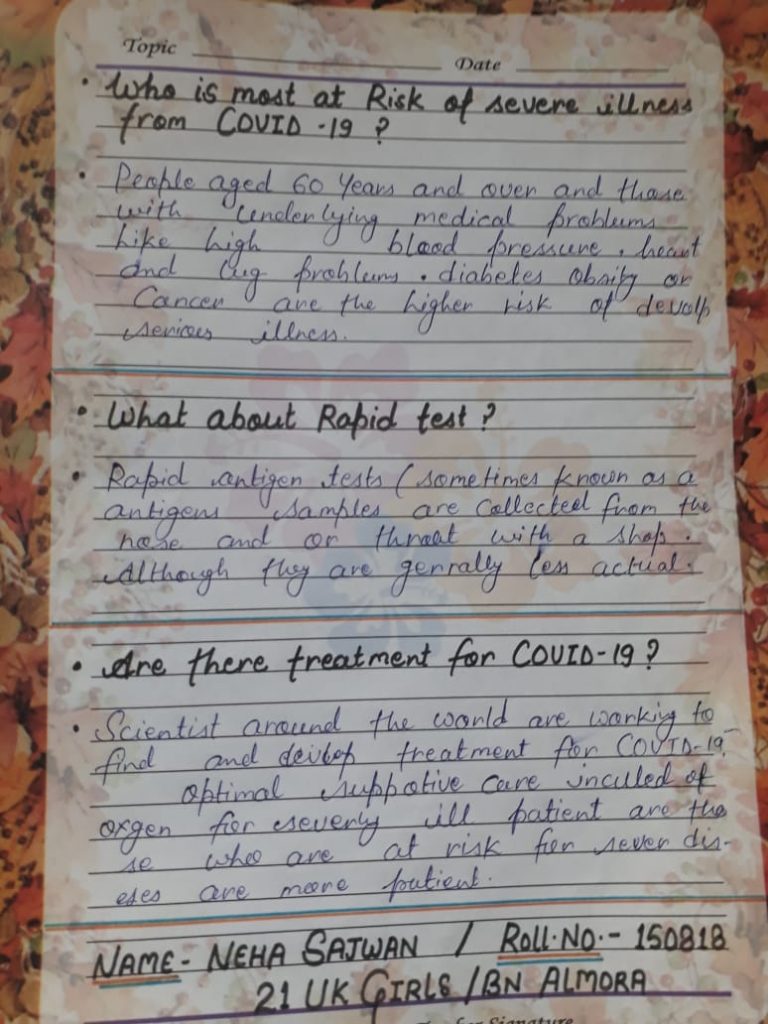 Topic
Date
• Who is most at Risk of severe illness
from COVID -19 ?
• People aged 60 Years and over and those
with underlying medical problems
like high blood pressure, heart
and lug problems. diabetes obsity or
Cancer are the higher risk of devolp
serious illness.
• What about Rapid test ?
• Rapid antigen tests (sometimes known as a
antigens samples are collected from the
nose and or throat with a shop.
Although they are genrally less actual.
• Are there treatment for COVID-19 ?
• Scientist around the world are working to
find and devlop treatment for COVID-19.
Optimal supportive care inculled of
oxgen for severly ill patient are the
se who are at risk for sever dis-
eses are more patient.
NAME- NEHA SAJWAN / ROLL.NO.- 150818
21 UK GIRLS /BN ALMORA
Signature